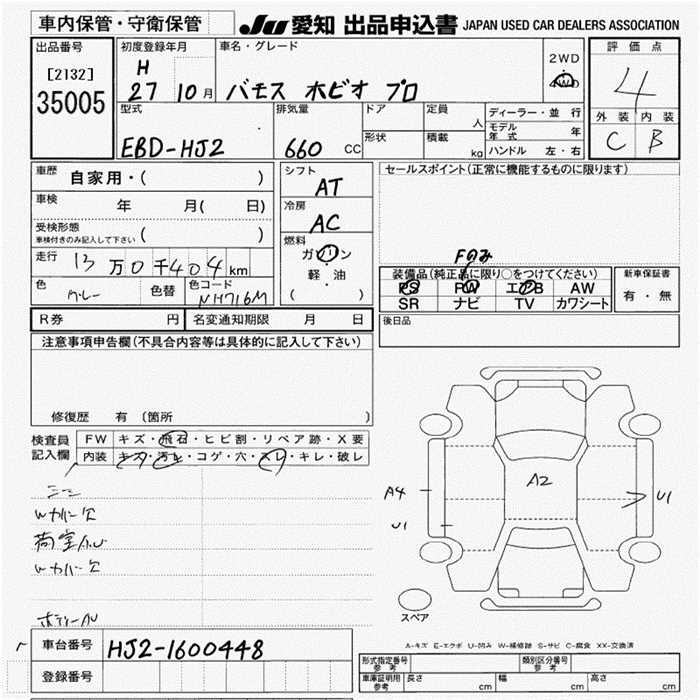 車内保管・守衛保管
JU 愛知 出品申込書 JAPAN USED CAR DEALERS ASSOCIATION
出品番号
[2132]
35005
初度登録年月
H
27 10月
車名・グレード
バモス ホビオ プロ
2WD
4WD
評価点
4
外装 内装
C B
型式
EBD-HJ2
排気量
660 CC
ドア
形状
定員
人
積載
kg
ディーラー・並行
モデル年式 年
ハンドル 左・右
車歴
自家用・( )
車検 年 月( 日)
受検形態
車検付きのみ記入して下さい ( )
走行 13万0千404km
色 グレー
色替
色コード
NH716M
シフト
AT
冷房
AC
燃料
ガソリン
軽・油
( )
セールスポイント(正常に機能するものに限ります)
Fのみ
装備品(純正品に限り○をつけてください)
PS PW エアB AW
SR ナビ TV カワシート
新車保証書
有・無
R券 円 名変通知期限 月 日
後日品
注意事項申告欄(不具合内容等は具体的に記入して下さい)
修復歴 有 (箇所 )
検査員
記入欄
FW キズ・飛石・ヒビ割・リペア跡・X要
内装 キズ・汚レ・コゲ・穴・スレ・キレ・破レ
A4
U1
A2
U1
スペア
A-キズ E-エクボ U-凹み W-補修跡 S-サビ C-腐食 XX-交換済
車台番号 HJ2-1600448
登録番号
形式指定番号
参考
類別区分番号
参考
車庫証明用
参考
長さ cm 幅 cm 高さ cm